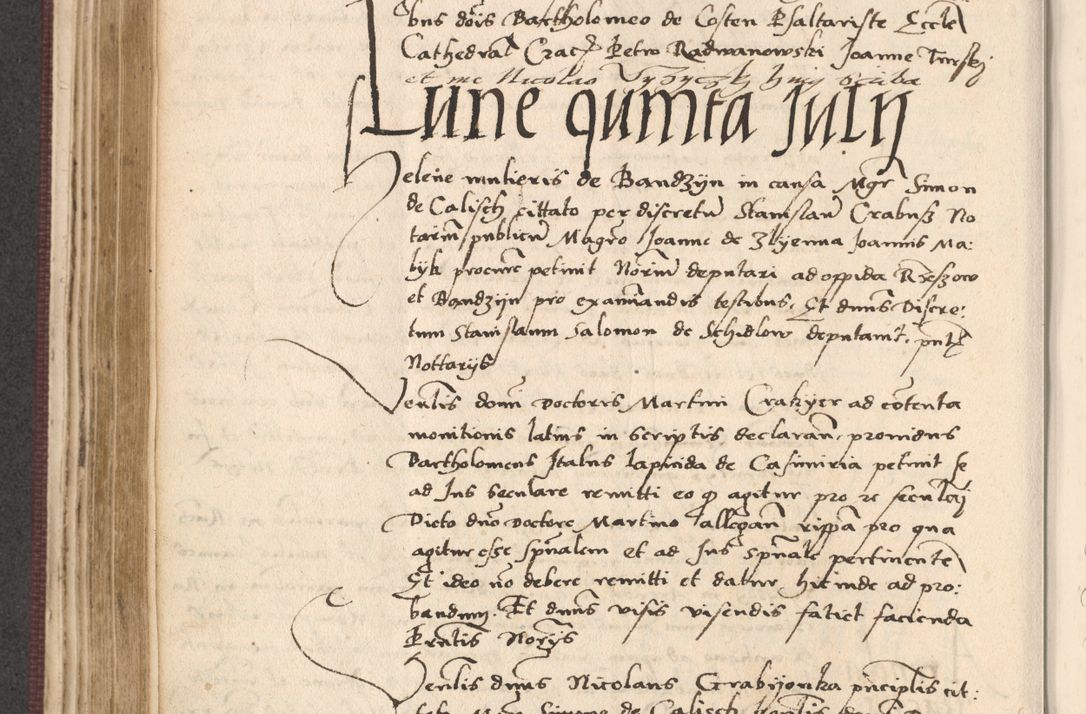 bus dñis Bartholomeo de Costen Psaltariste Eccle
Cathedral Crac Petro Radwanowski Joanne Turski
et me Nicolao huius scriba
Lune quinta Julij
Helene mulieris de Bandzijn in causa Mgr Simon
de Calisch cittato per discretū Stanislaū Crabusz No
tariū publicū Magro Joanne de Zlyenna Joannis Ma:
bijk procure petiuit Noriū deputari ad oppida Rzeszow
et Bandzijn pro examinandis testibus. Et dnus Discre:
tum Stanislaum Salomon de Schidlow deputauit. pntz
Nottarijs
Venlis domi Doctoris Martini Crakyer ad cōtenta
monitionis latius in scriptis declaran. prouidus
Bartholomeus Italus lapicida de Casimiria petiuit se
ad Jus seculare remitti eo q agitur pro re seculrj
Dicto dno doctore Martino allegan rippa pro qua
agitur esse spualem et ad Jus spuale pertinente
Et ideo nō debere remitti et datur hicinde ad pro:
bandum. Et dnus visis visendis faciet facienda
Prntis Norijs
Venlis dnus Nicolaus Grabijonka principlis cit:
Mgm Simone de Calisch